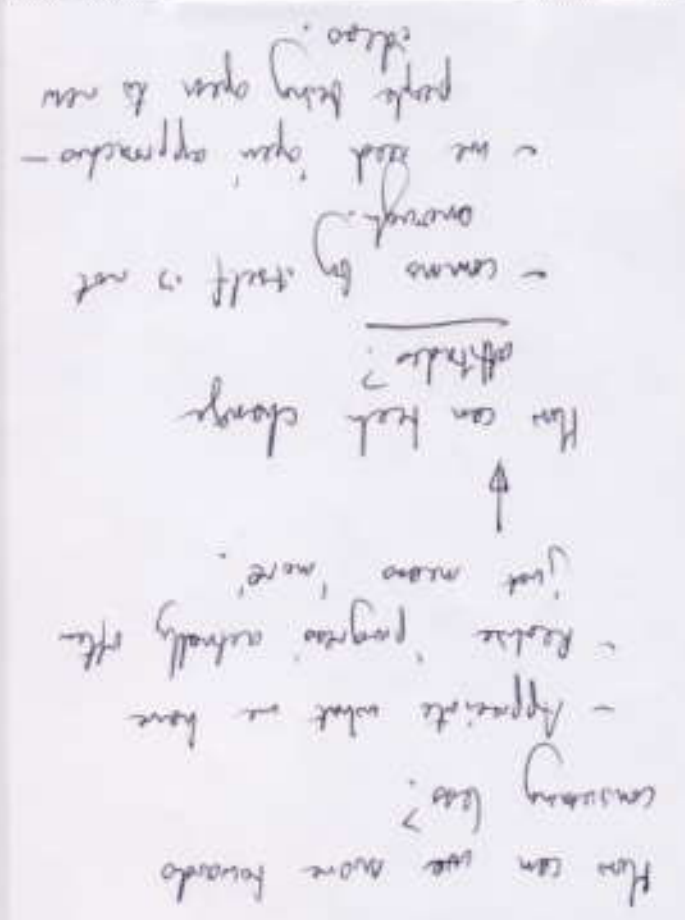 How can we move towards
consuming less?
- Appreciate what we have
- Realise 'progress' actually often
just means 'more'.
How can tech change
attitudes?
- comms by itself is not
enough.
- we need 'open' approaches -
people being open to new
ideas.